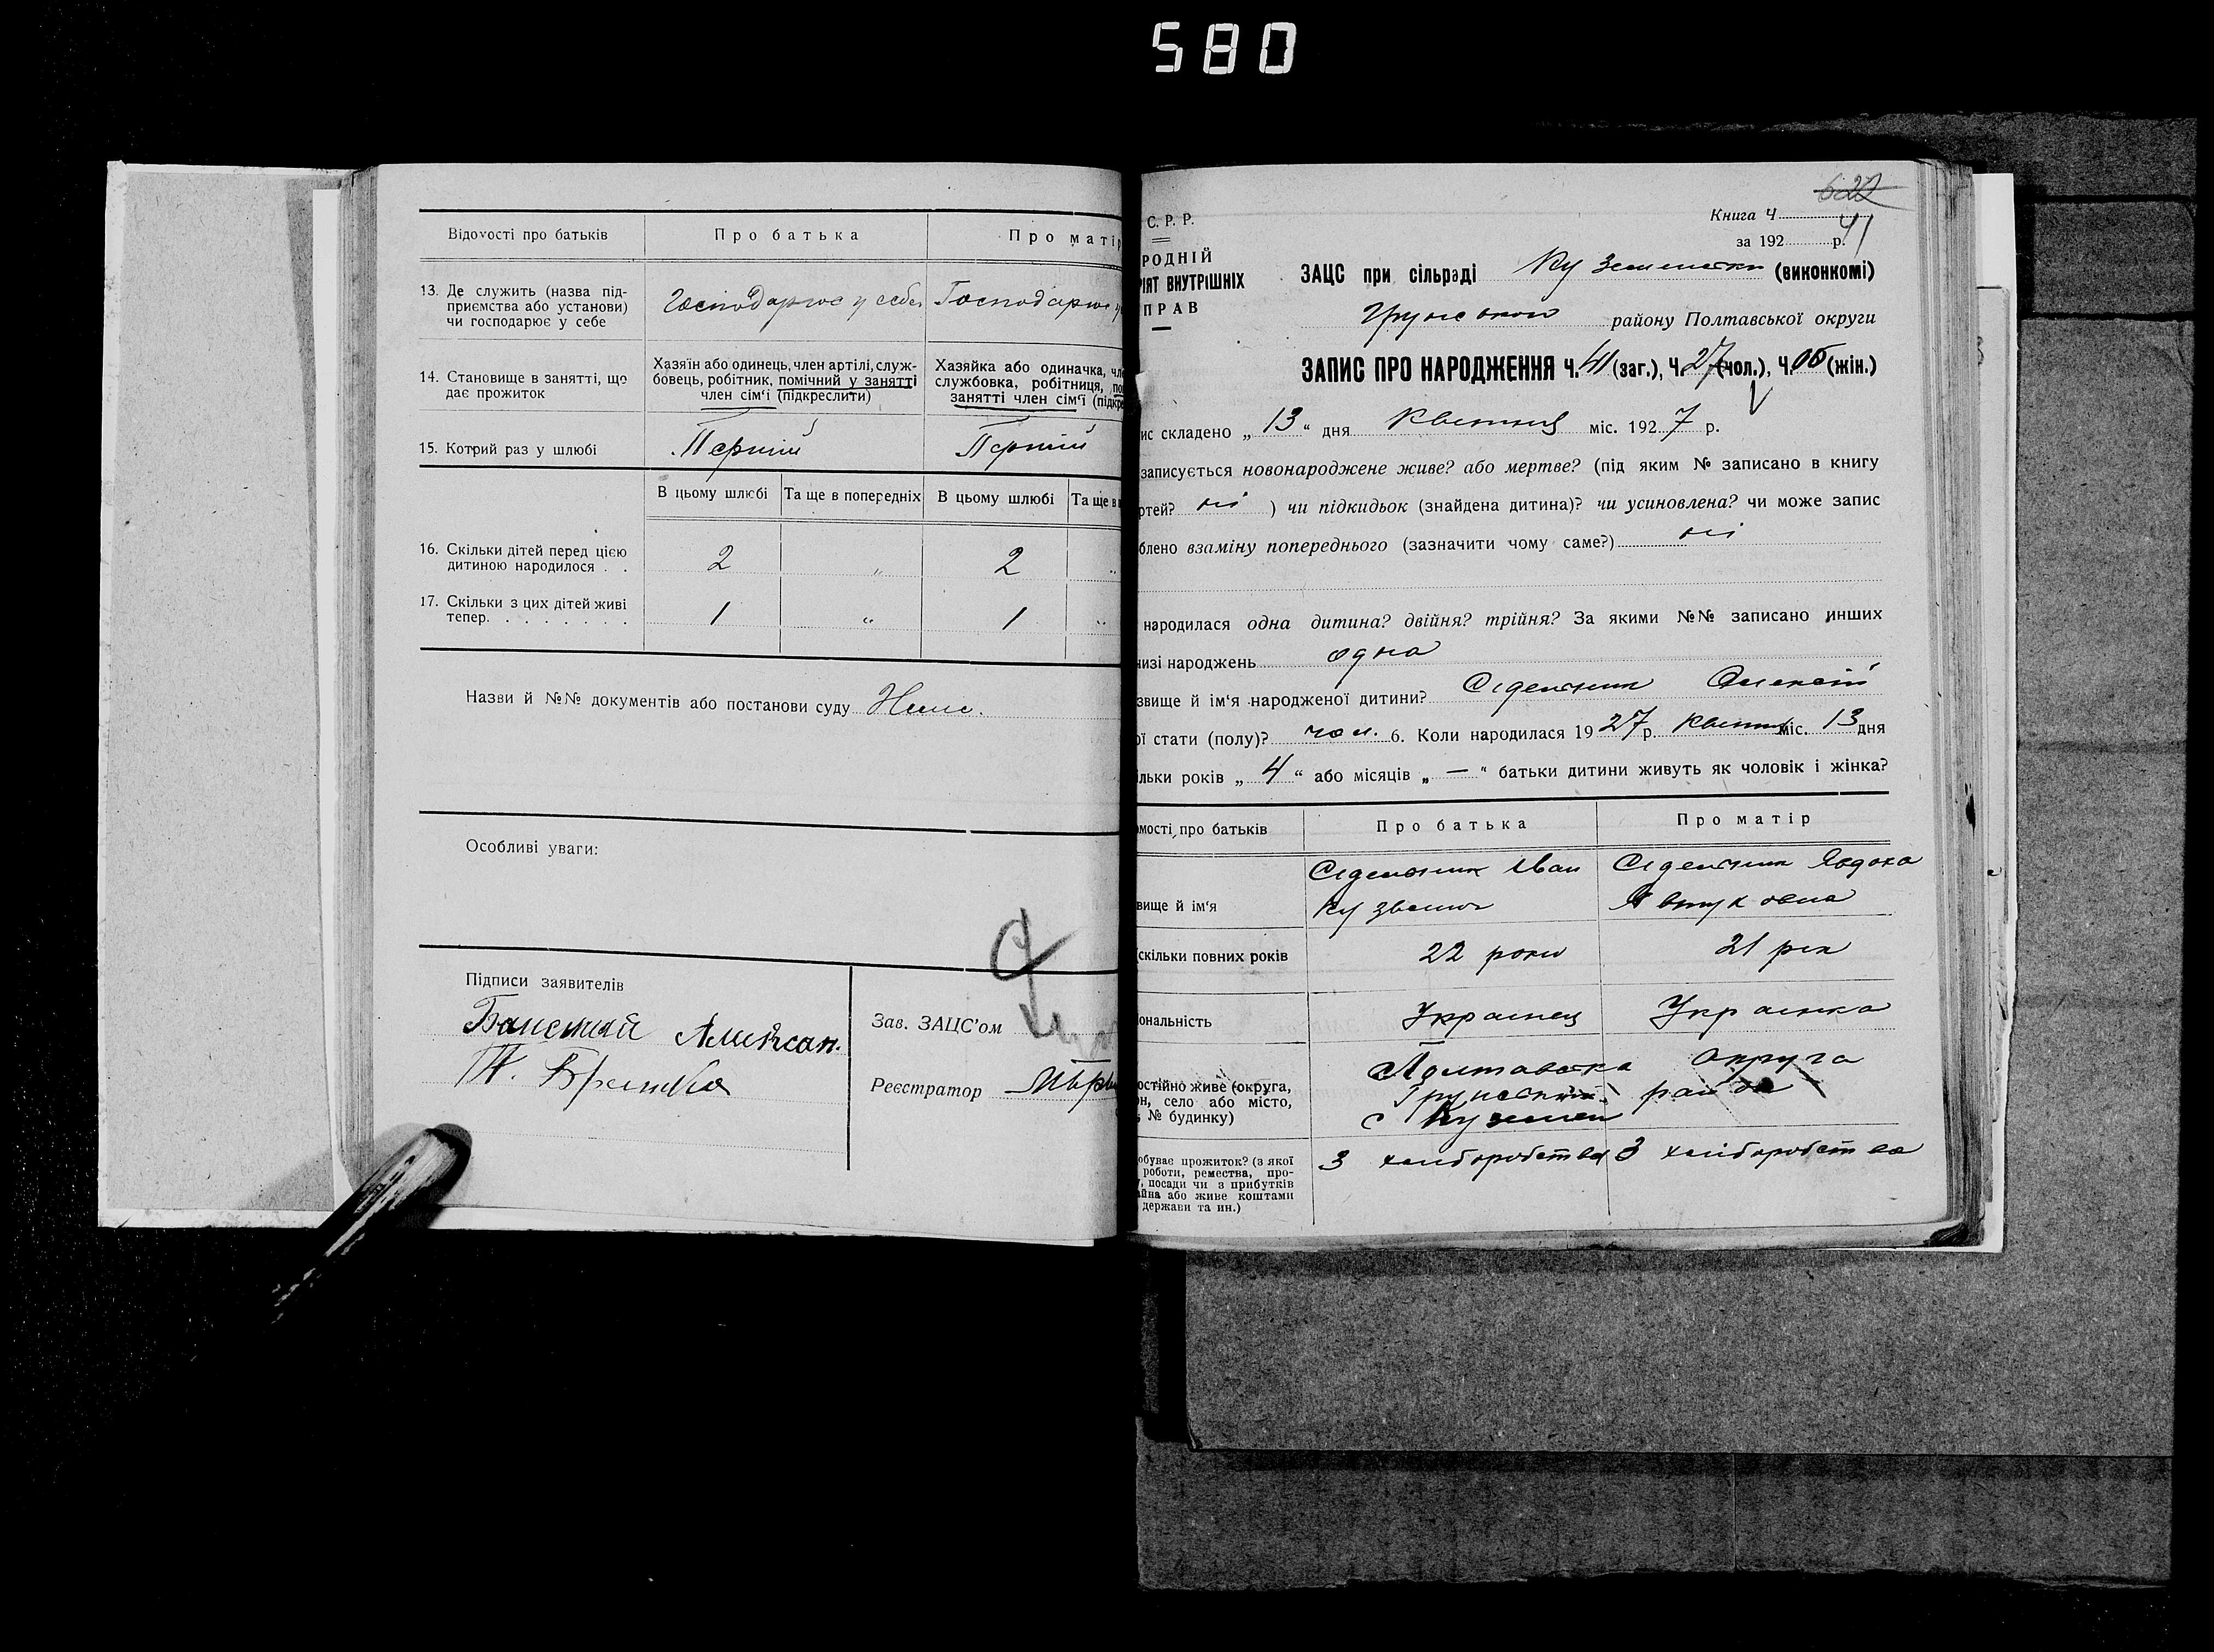 580
Відомості про батьків
Про батька
Про матір
13. Де служить (назва під-
приємства або установи)
чи господарює у себе
Господарює у себе
Господарює у
14. Становище в занятті, що
дає прожиток
Хазяїн або одинець, член артілі, служ-
бовець, робітник, помічний у занятті
член сім'ї (підкреслити)
Хазяйка або одиначка, чле
службовка, робітниця, по
занятті член сім'ї (підкре
15. Котрий раз у шлюбі
Перший
Перший
В цьому шлюбі
Та ще в попередніх
В цьому шлюбі
Та ще в
16. Скільки дітей перед цією
дитиною народилося . .
2
"
2
"
17. Скільки з цих дітей живі
тепер. . . . . . . .
1
"
1
"
Назви й №№ документів або постанови суду
Особливі уваги:
Підписи заявителів
Зав. ЗАЦС'ом
Реєстратор
622
С. Р. Р.
Книга Ч
41
за 192 р.
РОДНІЙ
РІЯТ ВНУТРІШНІХ
ПРАВ
ЗАЦС при сільраді (виконкомі)
району Полтавської округи
ЗАПИС ПРО НАРОДЖЕННЯ Ч. 41 (заг.), Ч. 27 (чол.), Ч. (жін.)
ис складено „ 13 " дня Квітня міс. 1927 р.
записується новонароджене живе? або мертве? (під яким № записано в книгу
ртей? ні ) чи підкидьок (знайдена дитина)? чи усиновлена? чи може запис
блено взаміну попереднього (зазначити чому саме?) ні
народилася одна дитина? двійня? трійня? За якими №№ записано инших
низі народжень одна
звище й ім'я народженої дитини? Олексій
ої стати (полу)? чол. 6. Коли народилася 1927 р. Квітня міс. 13 дня
ільки років „ 4 " або місяців „ — " батьки дитини живуть як чоловік і жінка?
омості про батьків
Про батька
Про матір
вище й ім'я
Іван
Явдоха
скільки повних років
22 роки
21 рік
ональність
Українец
Українка
остійно живе (округа,
он, село або місто,
№ будинку)
Полтавська округа
Грунський район
с
обуває прожиток? (з якої
роботи, ремества, про-
у, посади чи з прибутків
айна або живе коштами
держави та ин.)
З хліборобства
З хліборобства